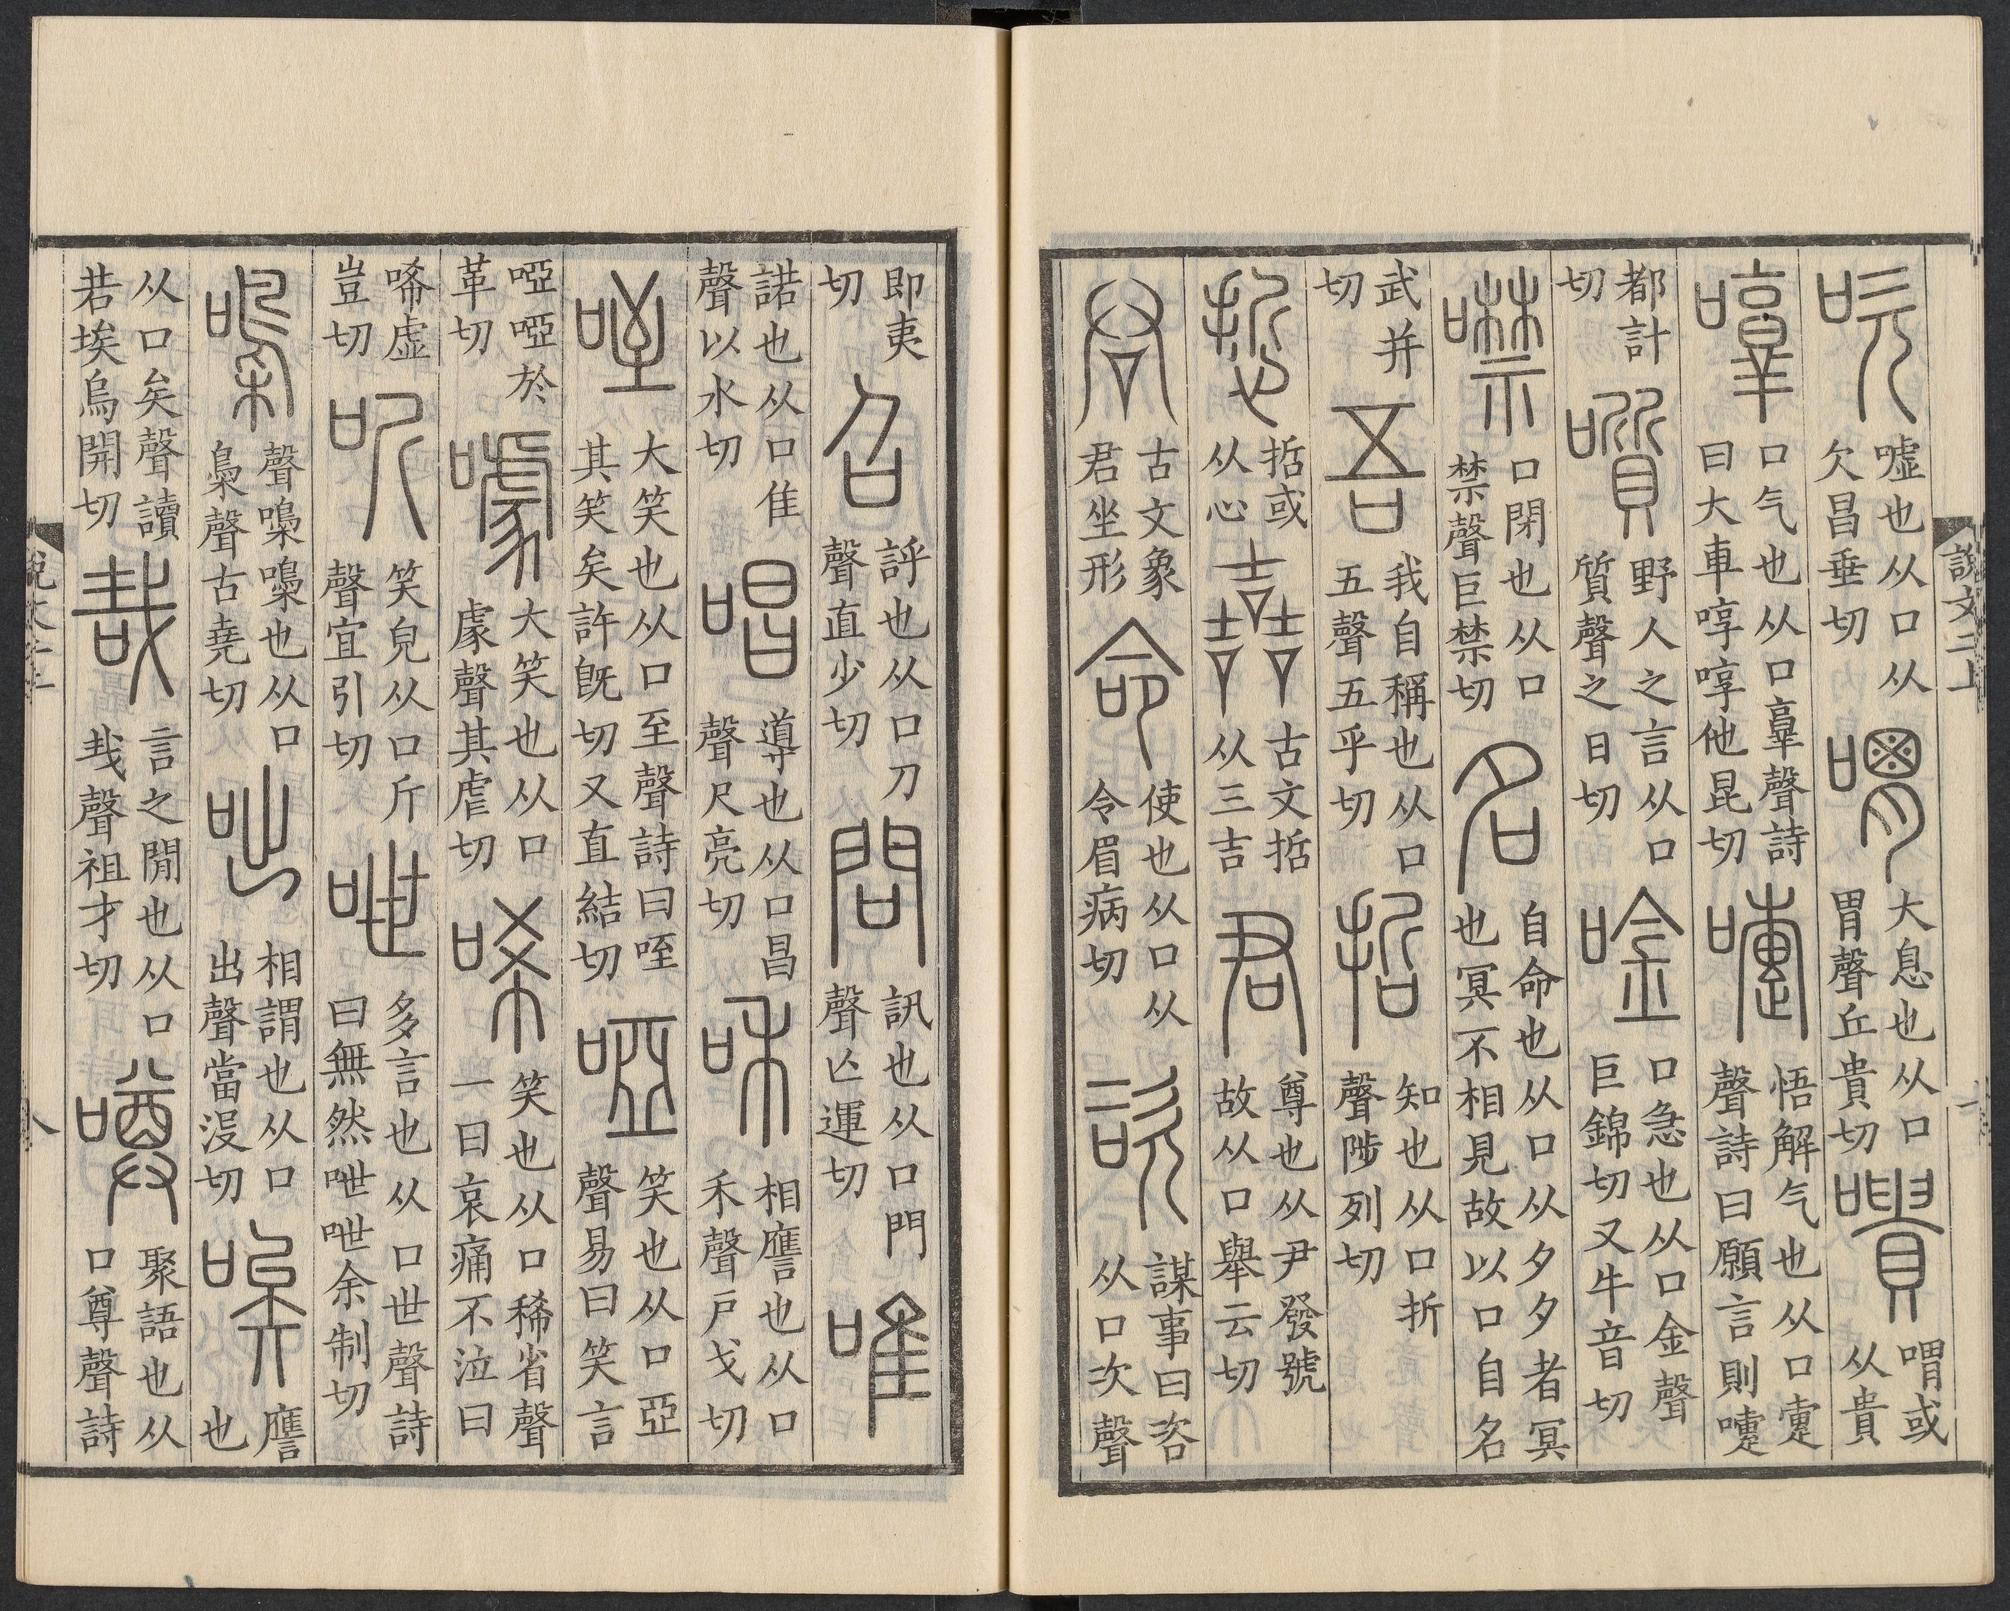 吹噓也从口从欠昌垂切喟大息也从口胃聲丘貴切嘳喟或从貴
啍口气也从口𦎫聲詩曰大車啍啍他昆切嚔悟解气也从口疐聲詩曰願言則嚔
都計切㗧野人之言从口質聲之日切唫口急也从口金聲巨錦切又牛音切
噤口閉也从口禁聲巨禁切名自命也从口从夕夕者冥也冥不相見故以口自名
武并切吾我自稱也从口五聲五乎切哲知也从口折聲陟列切
悊哲或从心嚞古文哲从三吉君尊也从尹發號故从口舉云切
𠱩古文象君坐形命使也从口从令眉病切咨謀事曰咨从口次聲
即夷切召評也从口刀聲直少切問訊也从口門聲亡運切唯
諾也从口隹聲以水切唱導也从口昌聲尺亮切和相譍也从口禾聲戶戈切
咥大笑也从口至聲詩曰咥其笑矣許旣切又直結切啞笑也从口亞聲易曰笑言
啞啞於革切噱大笑也从口豦聲其虐切唏笑也从口稀省聲一曰哀痛不泣曰
唏虛豈切听笑皃从口斤聲宜引切呭多言也从口世聲詩曰無然呭呭余制切
嘄聲嘄嘄也从口梟聲古堯切咄相謂也从口出聲當沒切唉譍也
从口矣聲讀若埃烏開切哉言之閒也从口𢦏聲祖才切噂聚語也从口尊聲詩
說文二上
八